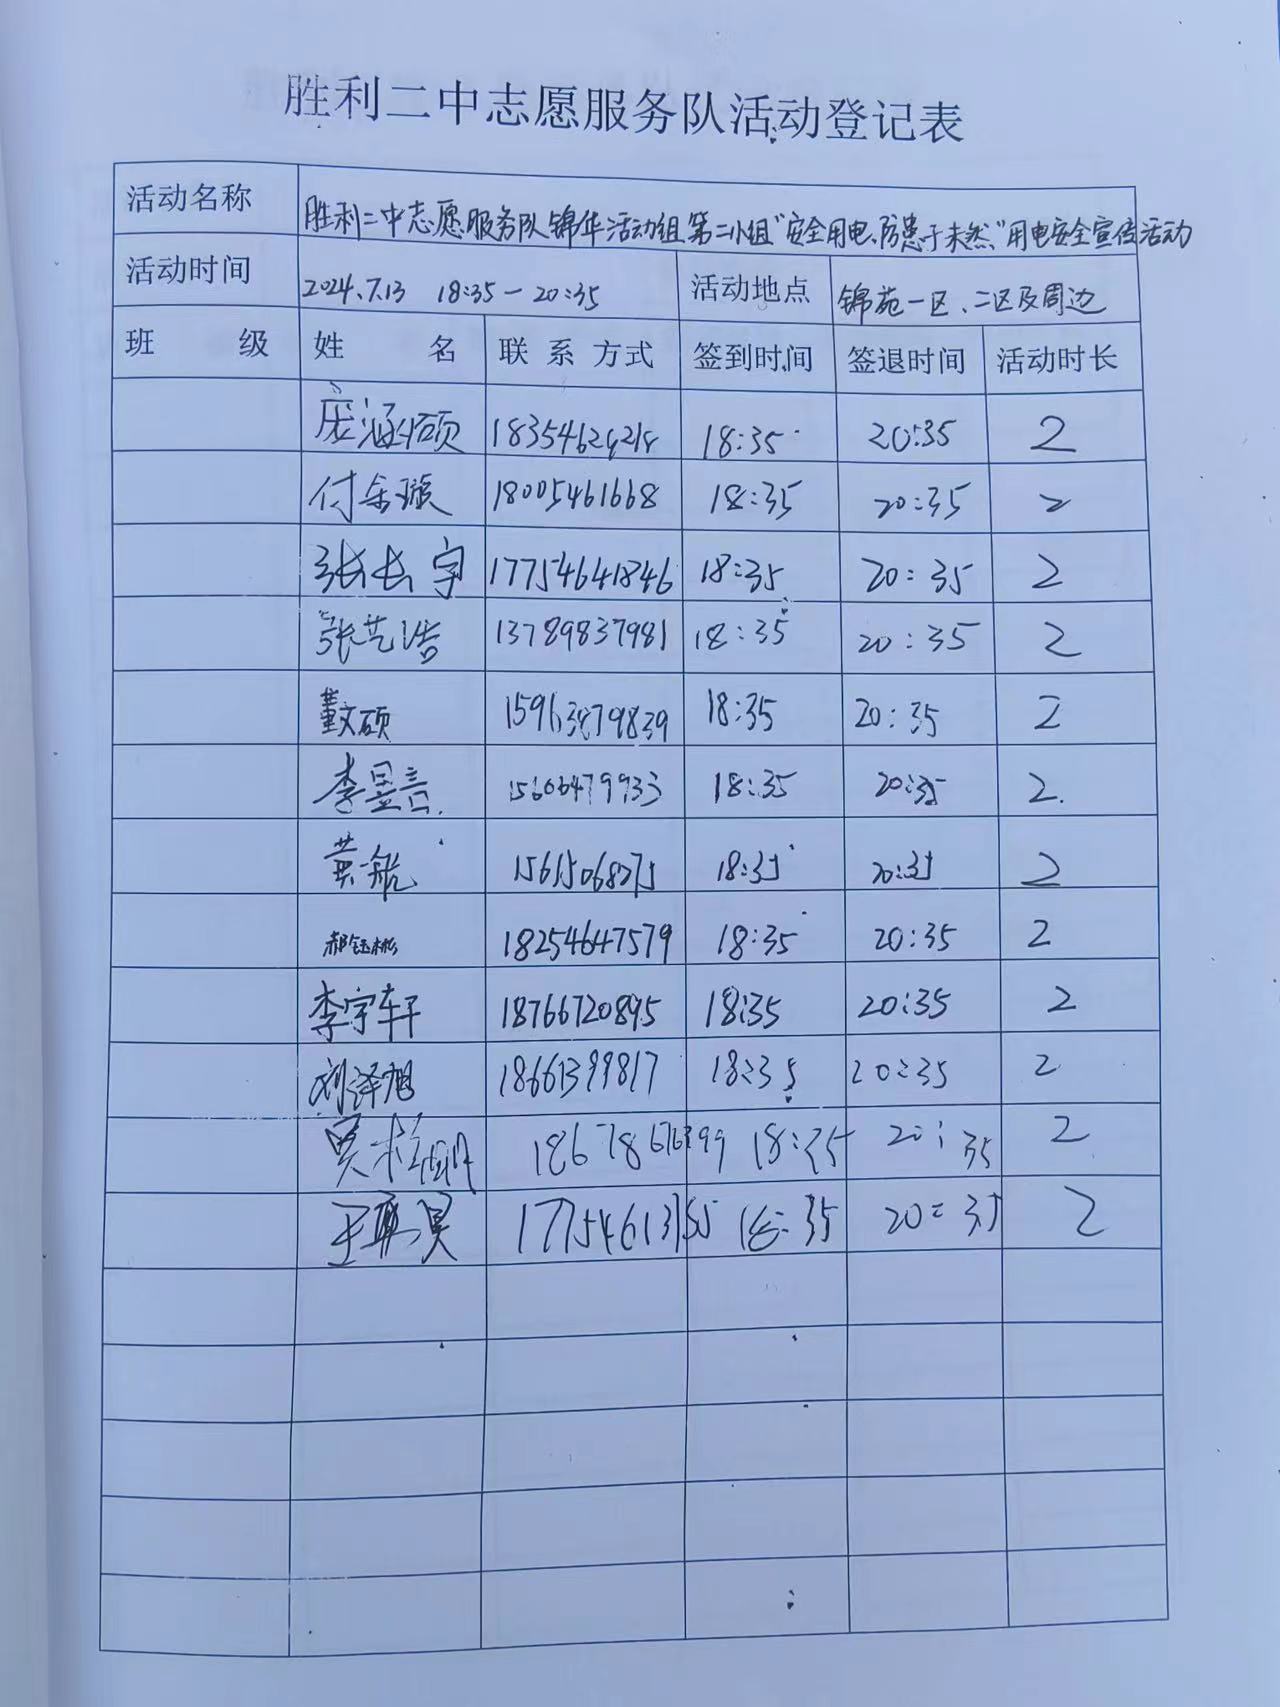 胜利二中志愿服务队活动登记表
活动名称 胜利二中志愿服务队锦华活动组第二小组“安全用电、防患于未然”用电安全宣传活动
活动时间 2024.7.13 18:35—20:35 活动地点 锦苑一区、二区及周边
班级 姓名 联系方式 签到时间 签退时间 活动时长
庞涵硕 18:35 20:35 2
付余璇 18005461668 18:35 20:35 2
张长宇 17754641846 18:35 20:35 2
张艺浩 13789837981 18:35 20:35 2
董文硕 15963879839 18:35 20:35 2
李昱言 15606479933 18:35 20:35 2
黄航 18:35 20:35 2
郝钰彬 18254647579 18:35 20:35 2
李宇轩 18766720895 18:35 20:35 2
刘泽旭 18661399817 18:35 20:35 2
18:35 20:35 2
18:35 20:35 2